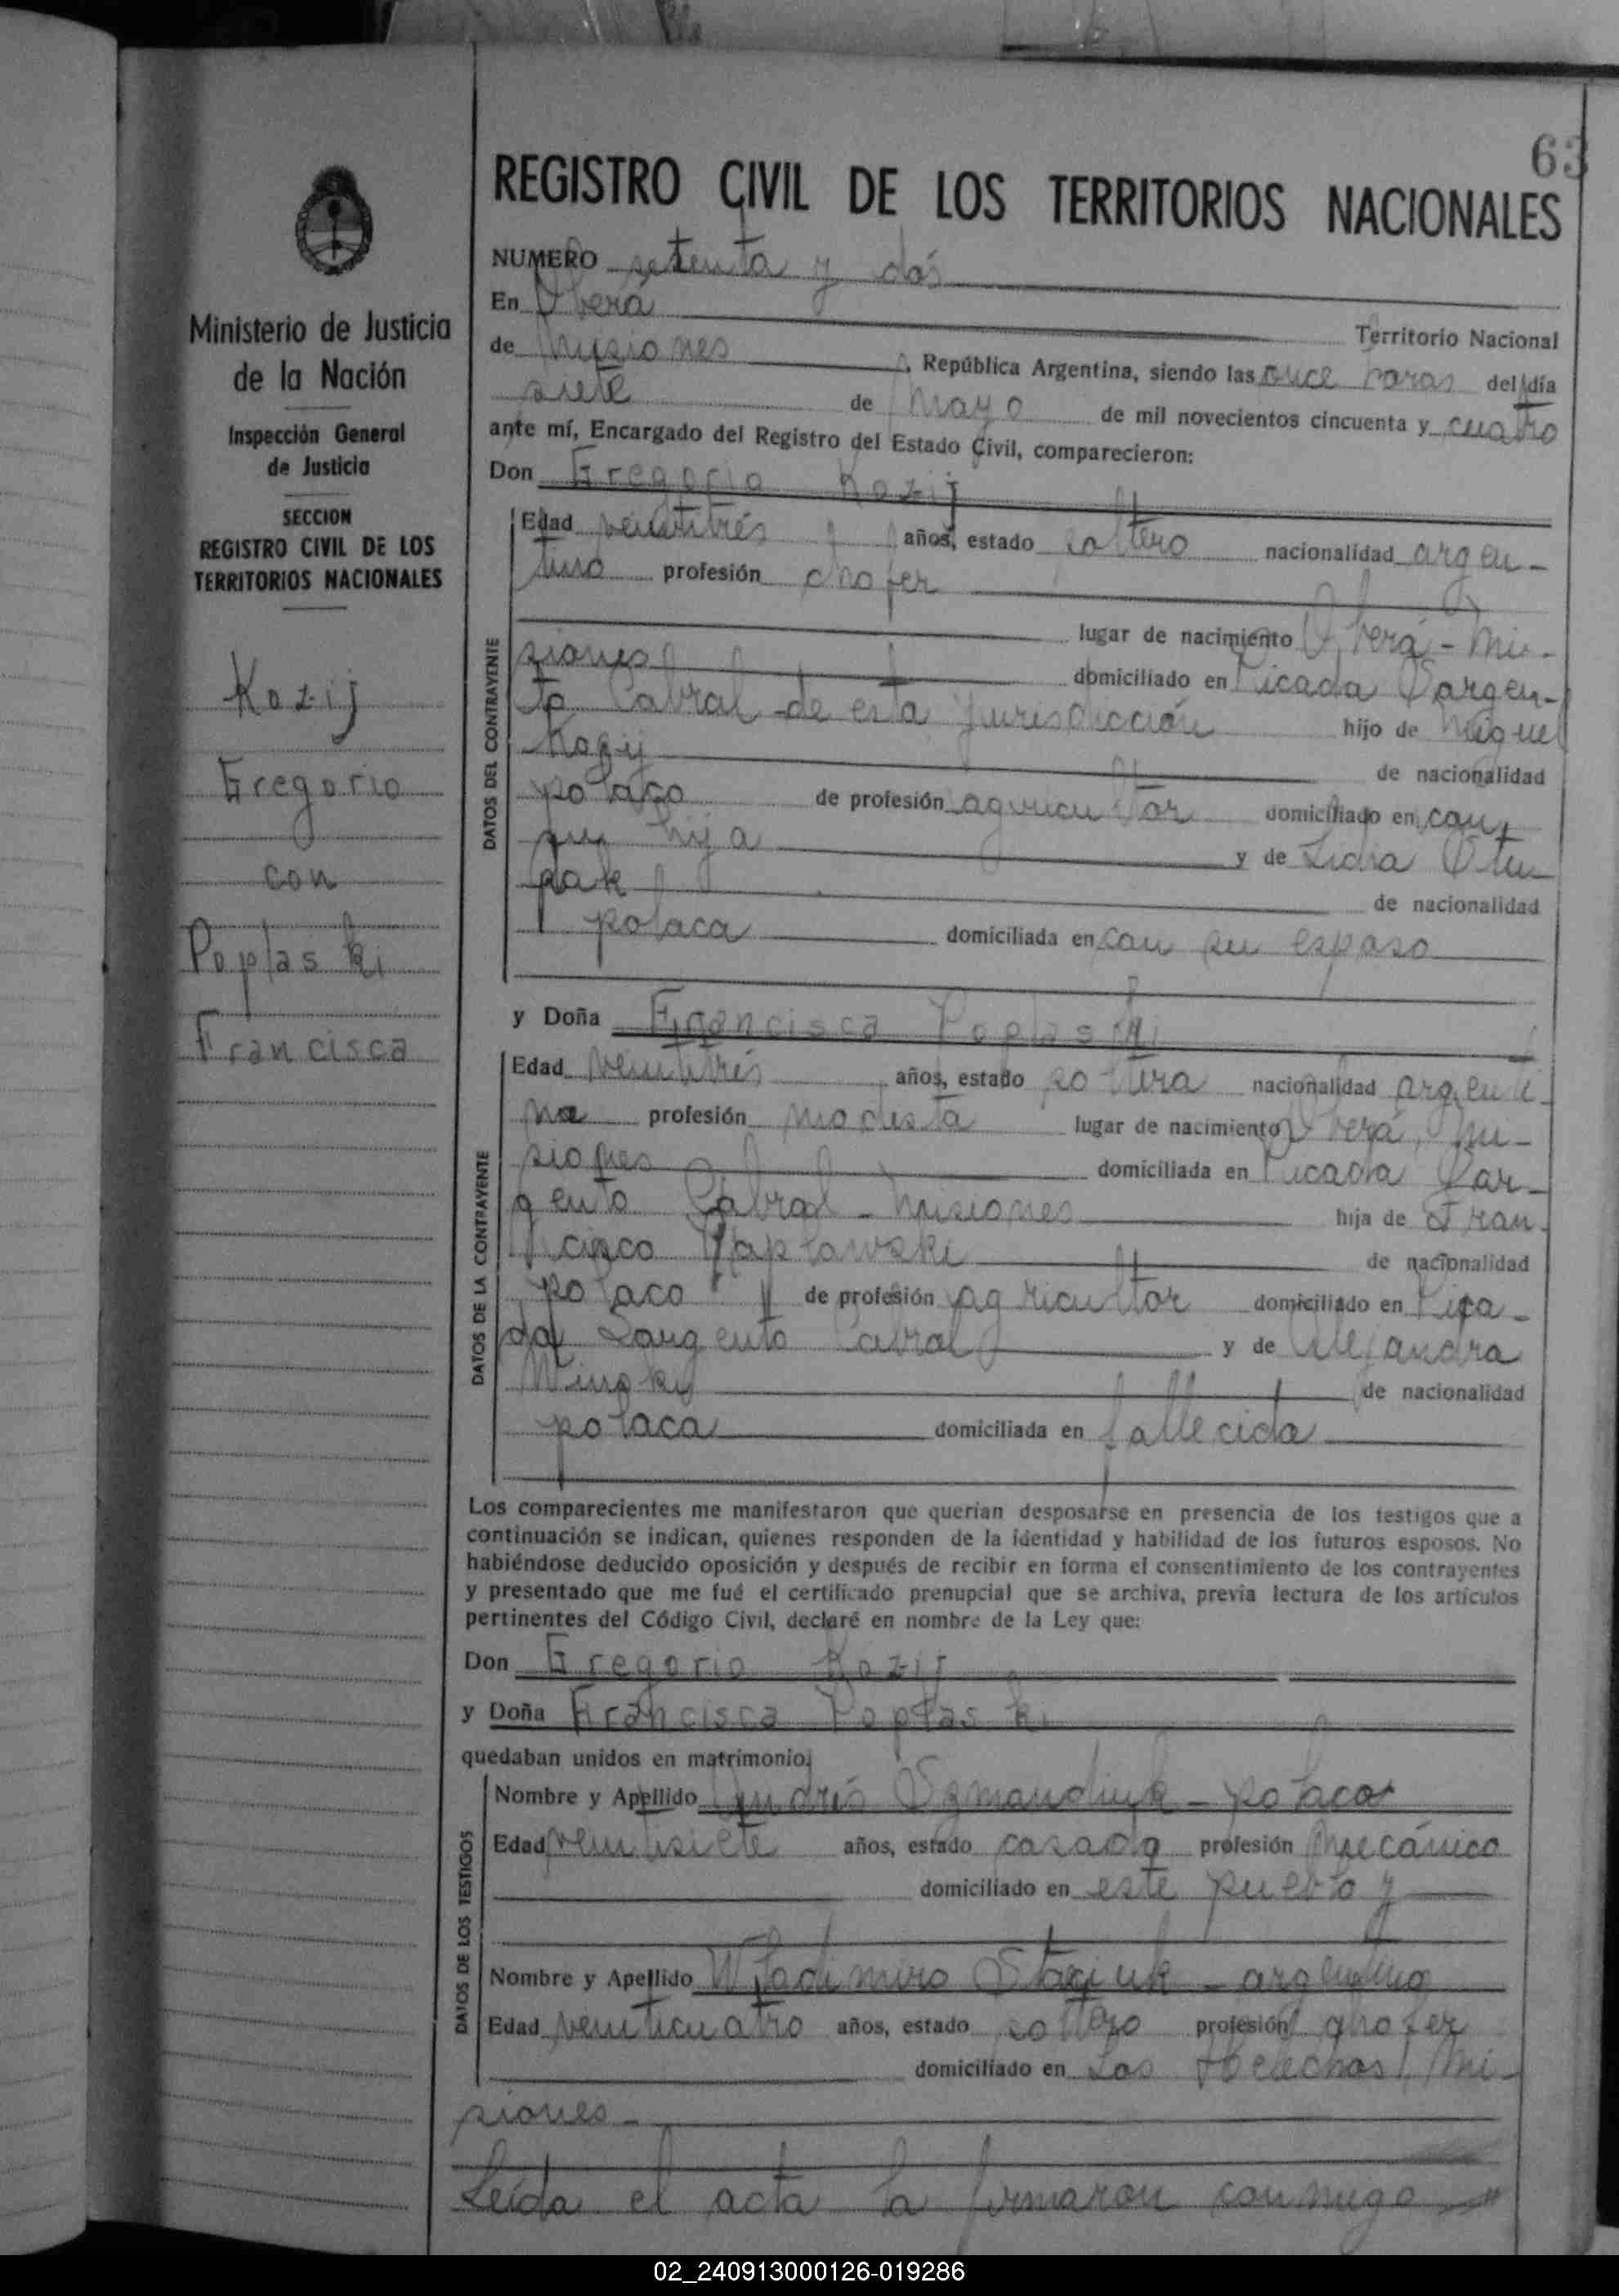 63
REGISTRO CIVIL DE LOS TERRITORIOS NACIONALES
Ministerio de Justicia
de la Nación
Inspección General
de Justicia
SECCION
REGISTRO CIVIL DE LOS
TERRITORIOS NACIONALES
Kozij
Gregorio
con
Poplaski
Francisca
NUMERO setenta y dos
En Oberá Territorio Nacional
de Misiones, República Argentina, siendo las once horas del día
siete de Mayo de mil novecientos cincuenta y cuatro
ante mí, Encargado del Registro del Estado Civil, comparecieron:
Don Gregorio Kozij
DATOS DEL CONTRAYENTE
Edad veintitrés años, estado soltero nacionalidad argen-
tino profesión chofer
lugar de nacimiento Oberá - Mi-
siones domiciliado en Picada Sargen-
to Cabral de esta jurisdicción hijo de Miguel
Kozij de nacionalidad
polaco de profesión agricultor domiciliado en con
su hijo y de Lidia
de nacionalidad
polaca domiciliada en con su esposo
y Doña Francisca Poplaski
DATOS DE LA CONTRAYENTE
Edad veintitrés años, estado soltera nacionalidad argenti-
na profesión modista lugar de nacimiento Oberá, Mi-
siones domiciliada en Picada Sar-
gento Cabral - Misiones hija de Fran-
cisco Poplawski de nacionalidad
polaco de profesión agricultor domiciliado en Pica-
da Sargento Cabral y de Alejandra
de nacionalidad
polaca domiciliada en fallecida
Los comparecientes me manifestaron que querían desposarse en presencia de los testigos que a
continuación se indican, quienes responden de la identidad y habilidad de los futuros esposos. No
habiéndose deducido oposición y después de recibir en forma el consentimiento de los contrayentes
y presentado que me fué el certificado prenupcial que se archiva, previa lectura de los artículos
pertinentes del Código Civil, declaré en nombre de la Ley que:
Don Gregorio Kozij
y Doña Francisca Poplaski
quedaban unidos en matrimonio.
DATOS DE LOS TESTIGOS
Nombre y Apellido Andrés - polaco
Edad veintisiete años, estado casado profesión Mecánico
domiciliado en este pueblo y
Nombre y Apellido Wladimiro - argentino
Edad veinticuatro años, estado soltero profesión chofer
domiciliado en Los Helechos, Mi-
siones -
Leída el acta la firmaron conmigo
02_240913000126-019286